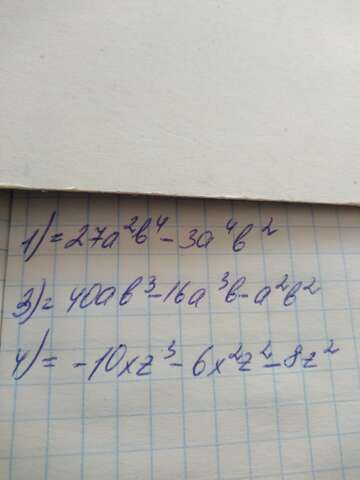 1) = 27a²b⁴ - 3a⁴b²
3) = 40ab³ - 16a³b - a²b²
4) = -10xz³ - 6x²z² - 8z²